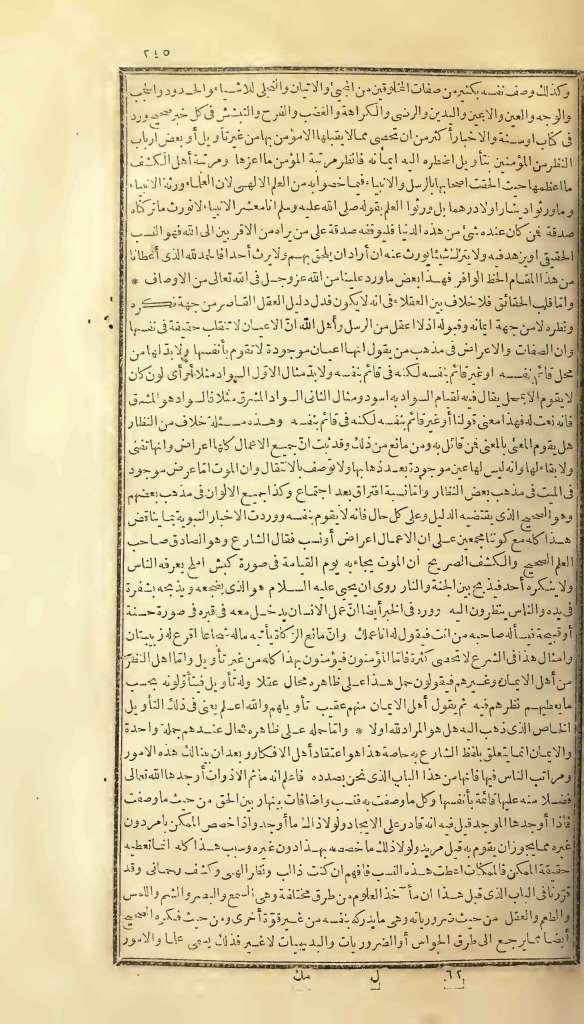 ٢٤٥
وكذلك وصف نفسه بكثير من صفات المخلوقين من المجئ والاتيان والتجلى للاشياء والحدود والحجب
والوجه والعين والاعين واليدين والرضى والكراهة والغضب والفرح والتبشش فى كل خبر صحيح ورد
فى كتاب أوسنة والاخبار أكثر من ان تحصى مما لا يقبلها الا مؤمن بها من غير تأويل أو بعض ارباب
النظر من المؤمنين بتأويل اضطره اليه ايمانه فانظر مرتبة المؤمن ما اعزها ومرتبة أهل الكشف
ما اعظمها حيث الحقت اصحابها بالرسل والانبياء فيما خصوا به من العلم الالهى لان العلماء ورثة الانبياء
وما ورثوا دينارا ولا درهما بل ورثوا العلم يقول صلى الله عليه وسلم انا معشر الانبياء لا نورث ما تركناه
صدقة فمن كان عنده شئ من هذه الدنيا فليوقفه صدقة على من يراه من الاقربين الى الله فهو النسب
الحقيقى أو يزهد فيه ولا يترك شيئا يورث عنه ان أراد ان يلحق بهم ولا يرث أحدا فالحمد لله الذى أعطانا
من هذا المقام الحظ الوافر فهذا بعض ما ورد علينا من الله عز وجل فى الله تعالى من الاوصاف *
واما قلب الحقائق فلا خلاف بين العقلاء فى انه لا يكون فدل دليل العقل القاصر من جهة فكره
ونظره لا من جهة ايمانه وقبوله اذ لا اعقل من الرسل وأهل الله ان الاعيان لا تنقلب حقيقة فى نفسها
وان الصفات والاعراض فى مذهب من يقول انها اعيان موجودة لا تقوم بأنفسها ولا بد لها من
محل قائم بنفسه أو غير قائم بنفسه لكنه فى قائم بنفسه ولا بد مثال الاول السواد مثلا أو أى لون كان
لا يقوم الا بمحل يقال فيه لقيام السواد به اسود ومثال الثانى السواد المشرق مثلا فالسواد هو المشرق
فانه نعت له فهذا معنى قولنا أو غير قائم بنفسه لكنه فى قائم بنفسه وهذه مسئلة خلاف من النظار
هل يقوم المعنى بالمعنى فمن قائل به ومن مانع من ذلك وقد ثبت ان جميع الاعمال كلها اعراض وانها تفنى
ولا بقاء لها وانه ليس لها عين موجودة بعد ذهابها ولا توصف بالانتقال وان الموت اما عرض موجود
فى الميت فى مذهب بعض النظار واما نسبة افتراق بعد اجتماع وكذا جميع الاكوان فى مذهب بعضهم
وهو الصحيح الذى يقتضيه الدليل وعلى كل حال فانه لا يقوم بنفسه ووردت الاخبار النبوية بما يناقض
هذا كله مع كوننا مجمعين على ان الاعمال اعراض أو نسب فقال الشارع وهو الصادق صاحب
العلم الصحيح والكشف الصريح ان الموت يجاء به يوم القيامة فى صورة كبش املح يعرفه الناس
ولا ينكره أحد فيذبح بين الجنة والنار روى ان يحيى عليه السلام هو الذى يضجعه ويذبحه بشفرة
فى يده والناس ينظرون اليه وورد فى الخبر أيضا ان عمل الانسان يدخل معه فى قبره فى صورة حسنة
أو قبيحة فيسأله صاحبه من انت فيقول له انا عملك وان مانع الزكاة يأتيه ماله شجاعا اقرع له زبيبتان
وامثال هذا فى الشرع لا تحصى كثرة فأما المؤمنون فيؤمنون بهذا كله من غير تأويل واما اهل النظر
من أهل الايمان وغيرهم فيقولون حمل هذا على ظاهره محال عقلا وله تأويل فيتأولونه بحسب
ما يعطيهم نظرهم فيه ثم يقول أهل الايمان منهم عقيب تأويلهم والله اعلم يعنى فى ذلك التأويل
الخاص الذى ذهب اليه هل هو المراد لله اولا * واما حمله على ظاهره فمحال عندهم جملة واحدة
والايمان انما يتعلق بلفظ الشارع به خاصة هذا هو اعتقاد أهل الافكار وبعد ان بينا لك هذه الامور
ومراتب الناس فيها فانها من هذا الباب الذى نحن بصدده فاعلم انه ما ثم الا ذوات أوجدها الله تعالى
فضلا منه عليها قائمة بأنفسها وكل ما وصفت به فنسب واضافات بينها وبين الحق من حيث ما وصفت
فاذا أوجدها الموجد قيل فيه انه قادر على الايجاد ولولا ذلك ما أوجد واذا خصص الممكن بأمر دون
غيره مما يجوز ان يقوم به قيل مريد ولولا ذلك ما خصصه بهذا دون غيره وسبب هذا كله انما تعطيه
حقيقة الممكن فالممكنات اعطت هذه النسب فافهم ان كنت ذا لب ونظر الهى وكشف رحمانى وقد
قررنا فى الباب الذى قبل هذا ان مآخذ العلوم من طرق مختلفة وهى السمع والبصر والشم واللمس
والطعم والعقل من حيث ضرورياته وهى ما يدركه بنفسه من غير قوة أخرى ومن حيث فكره الصحيح
أيضا مما يرجع الى طرق الحواس أو الضروريات والبديهيات لا غير فذلك يسمى علما والامور
٦٢ ل مك